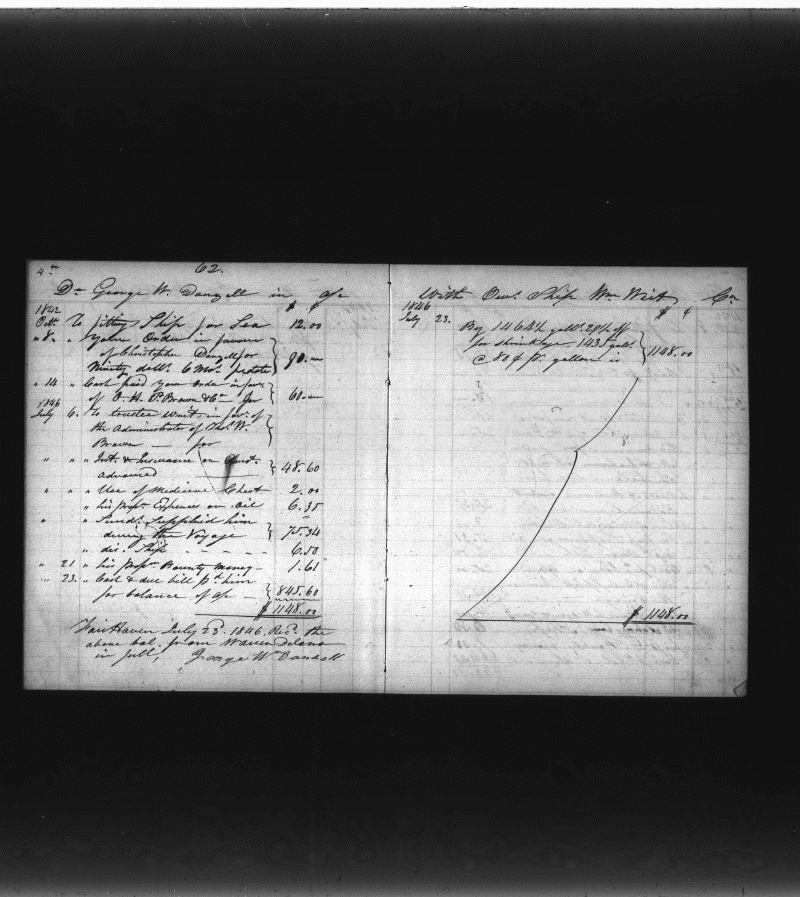 62.
Dr George W. Danzell in a/c
$ ¢
1842
Octr. To fitting Ship for Sea 12.00
" 8. " your Order in favour
of Christopher Danzell for
Ninety doll. 6 Mos. pr date 90.00
" 14 " Cash paid your order in fav.
of O. H. P. Brown & Co. for 60.00
1846
July 6. To trustee Writ, in fav. of
the Administrator of W.
Brown — for
" " Int. & Insurance on
advanced 48.60
" " Use of Medicine Chest 2.00
" his propn. Expenses on oil 6.35
" " Sunds. Supplied him
during the Voyage 75.34
" do. Ship - - - - 6.50
" 21 " his propn Bounty Money - 1.61
" 23. " Cash & due bill pd. him
for balance of a/c — 845.60
$ 1148.00
Fair Haven July 23d. 1846. Recd. the
above bal. from Warren Delano
in full, George W Danzell
With Ship Wm Wirt Cr
1846 $ ¢
July 23. By 14641 galls.
for shrinkage - 143 galls.
@ 80¢ pr. gallon is 1148.00
$ 1148.00